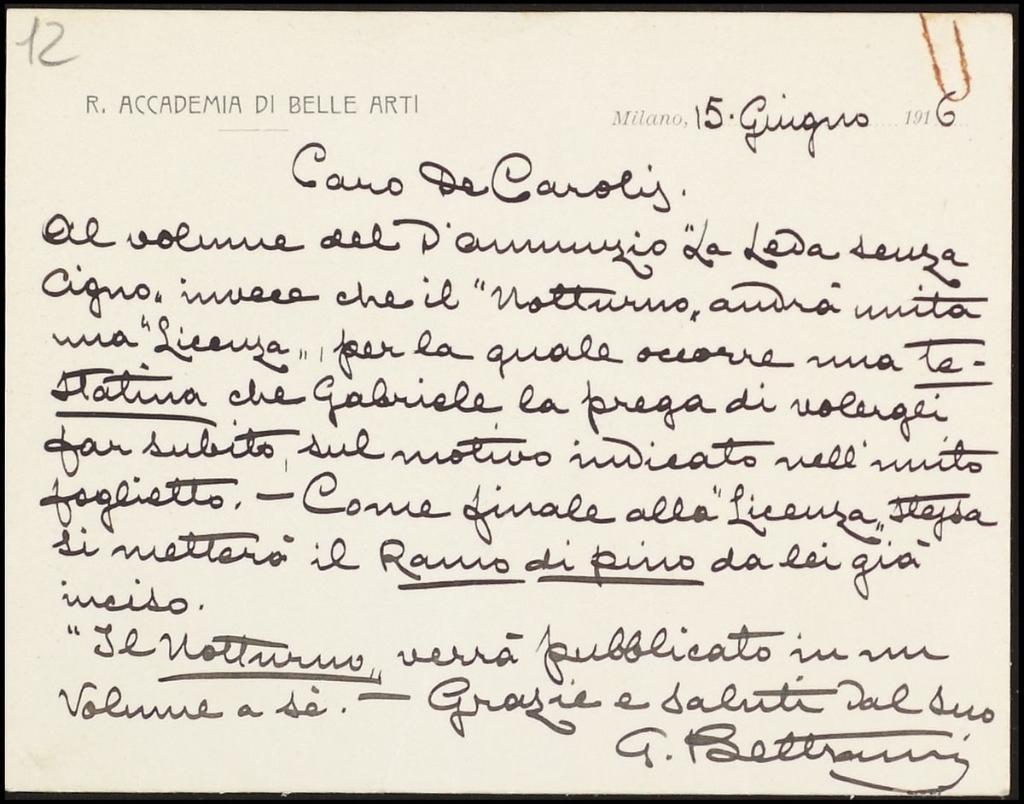 12
R. ACCADEMIA DI BELLE ARTI
Milano, 15. Giugno 1916
Caro De Carolis.
Al volume del D'annunzio "La Leda senza
Cigno" invece che il "Notturno" andrà unita
una "Licenza", per la quale occorre una te-
statina che Gabriele la prega di volergli
far subito, sul motivo indicato nell'unito
foglietto. — Come finale alla "Licenza" stessa
si metterà il Ramo di pino da lei già
inciso.
"Il Notturno" verrà pubblicato in un
Volume a sè. — Grazie e saluti dal suo
G. Beltrami